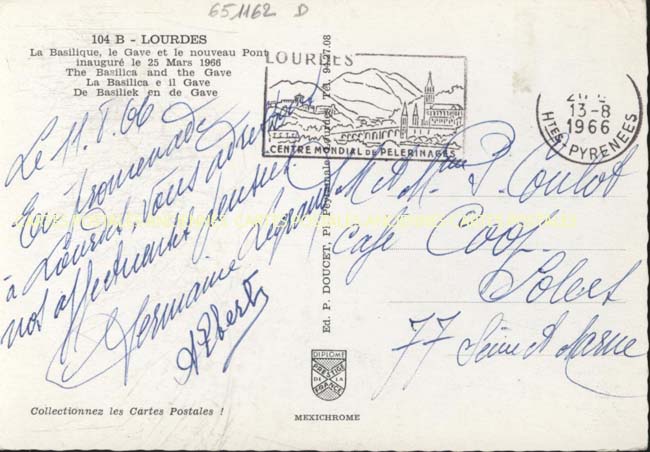 651162 D
104 B - LOURDES
La Basilique, le Gave et le nouveau Pont
inauguré le 25 Mars 1966
The Basilica and the Gave
La Basilica e il Gave
De Basiliek en de Gave
LOURDES
CENTRE MONDIAL DE PELERINAGES
13-8
1966
HTES-PYRENEES
Le 11.
66
En promenade
à Lourdes vous adressons
nos affectueuses pensées
Germaine Legrand
Albert
M et Mme P. Coulot
Café Coop
Solers
77 Seine et Marne
Ed. P. DOUCET, Pl. Peyramale Lourdes, Tél. 94.27.08
DIPLOME
PRESTIGE
DE LA
FRANCE
Collectionnez les Cartes Postales !
MEXICHROME